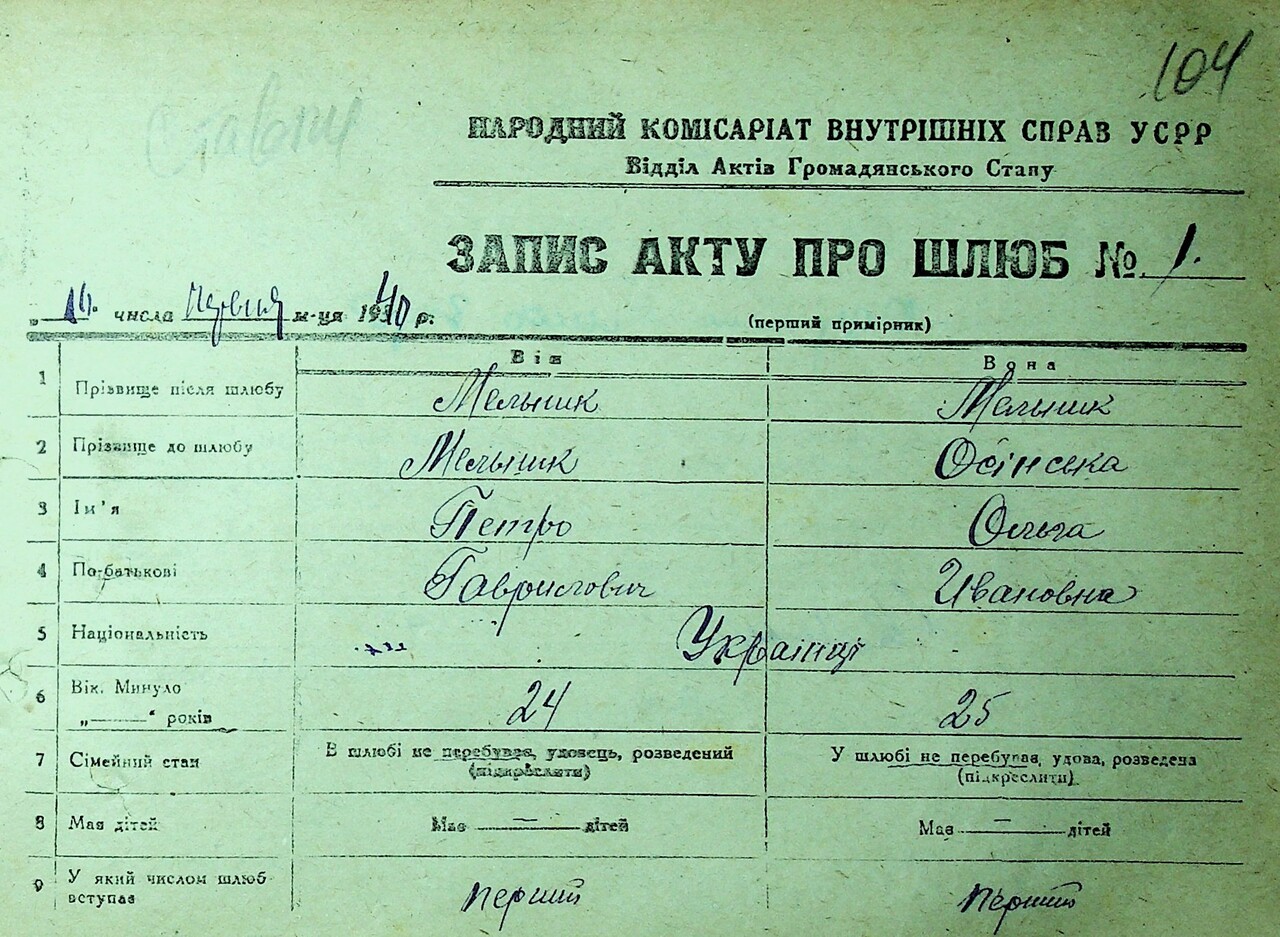 104
НАРОДНИЙ КОМІСАРІАТ ВНУТРІШНІХ СПРАВ УСРР
Відділ Актів Громадянського Стану
ЗАПИС АКТУ ПРО ШЛЮБ № 1.
" числа м-ця 1940 р.
(перший примірник)
Він Вона
1 Прізвище після шлюбу Мельник Мельник
2 Прізвище до шлюбу Мельник Осінська
3 Ім'я Петро Ольга
4 По-батькові Гаврилович Ивановна
5 Національність Українці
6 Вік. Минуло 24 25
„———" років
7 Сімейний стан В шлюбі не перебував, удовець, розведений У шлюбі не перебував, удова, розведена
(підкреслити) (підкреслити)
8 Має дітей Має — дітей Має — дітей
9 У який числом шлюб перший перший
вступає